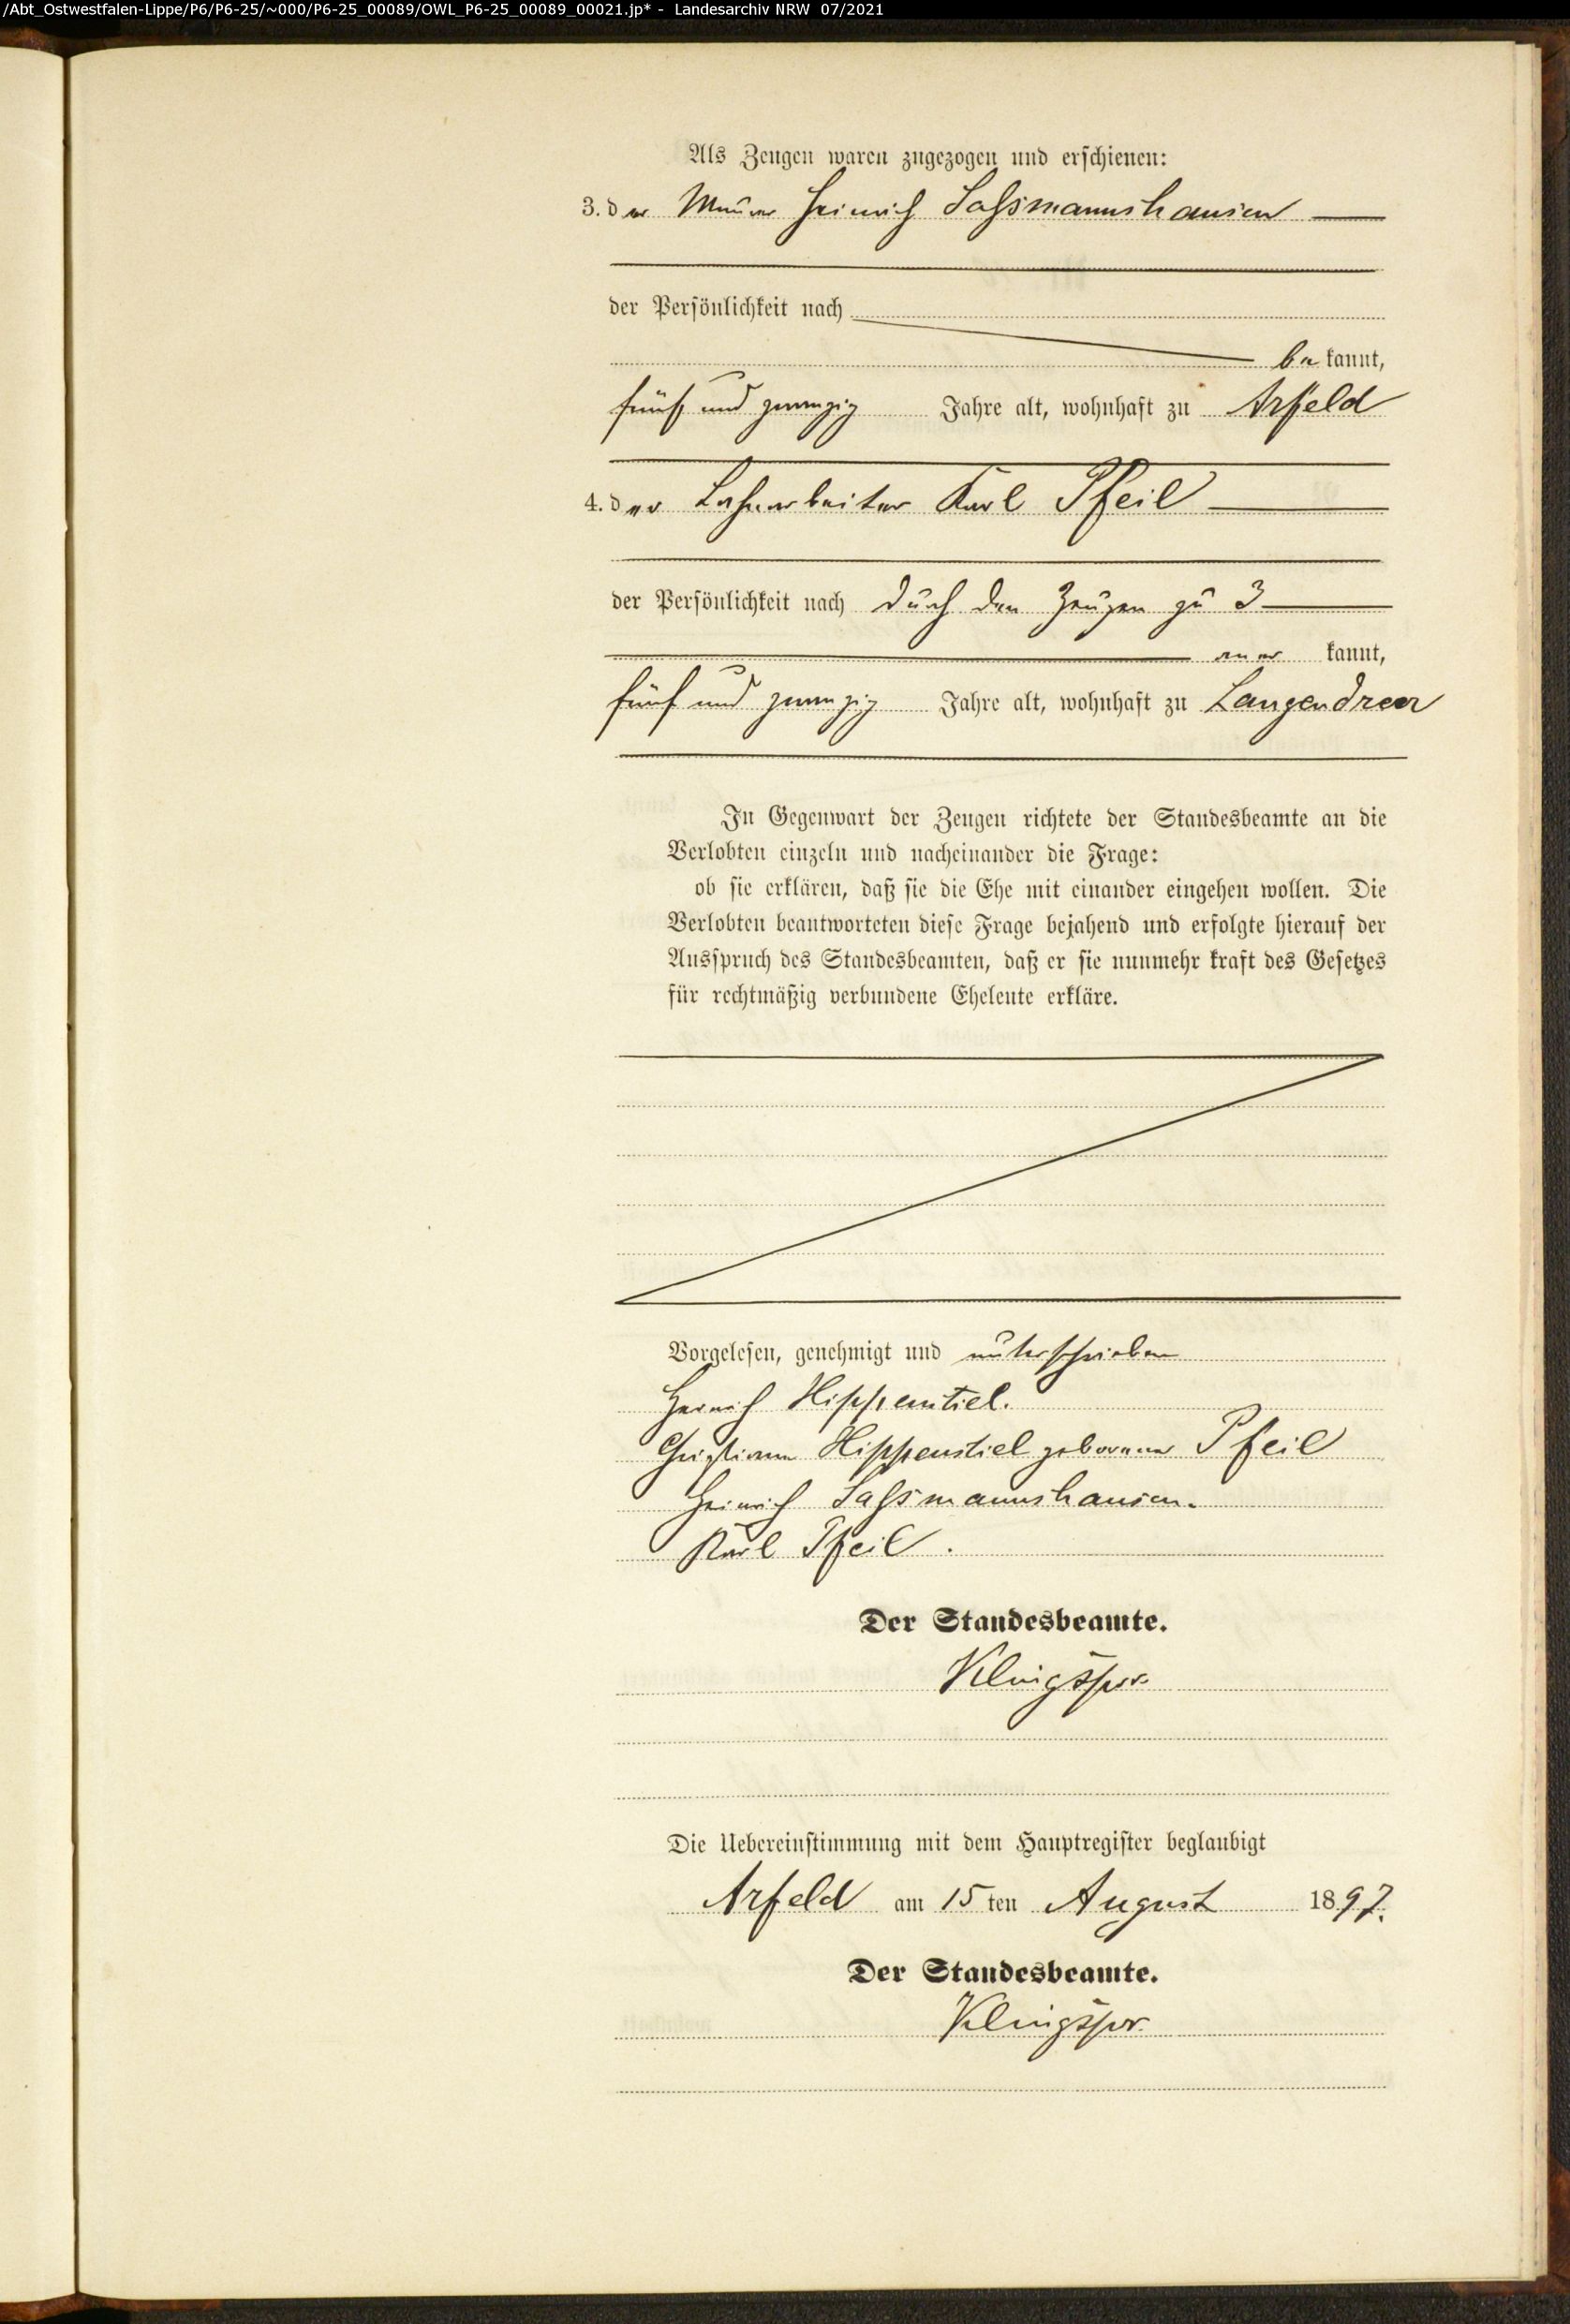 /Abt_Ostwestfalen-Lippe/P6/P6-25/~000/P6-25_00089/OWL_P6-25_00089_00021.jp* - Landesarchiv NRW 07/2021
Als Zeugen waren zugezogen und erschienen:
3. der Maurer Heinrich Saßmannshausen
der Persönlichkeit nach
bekannt,
fünf und zwanzig Jahre alt, wohnhaft zu Arfeld
4. der Karl Pfeil
der Persönlichkeit nach durch den Zeugen zu 3
aner kannt,
fünf und zwanzig Jahre alt, wohnhaft zu Langendreer
In Gegenwart der Zeugen richtete der Standesbeamte an die
Verlobten einzeln und nacheinander die Frage:
ob sie erklären, daß sie die Ehe mit einander eingehen wollen. Die
Verlobten beantworteten diese Frage bejahend und erfolgte hierauf der
Ausspruch des Standesbeamten, daß er sie nunmehr kraft des Gesetzes
für rechtmäßig verbundene Eheleute erkläre.
Vorgelesen, genehmigt und unterschrieben
Heinrich Hippenstiel.
Christiane Hippenstiel geborene Pfeil
Heinrich Saßmannshausen.
Karl Pfeil.
Der Standesbeamte.
Klingspor.
Die Uebereinstimmung mit dem Hauptregister beglaubigt
Arfeld am 15ten August 1897.
Der Standesbeamte.
Klingspor.